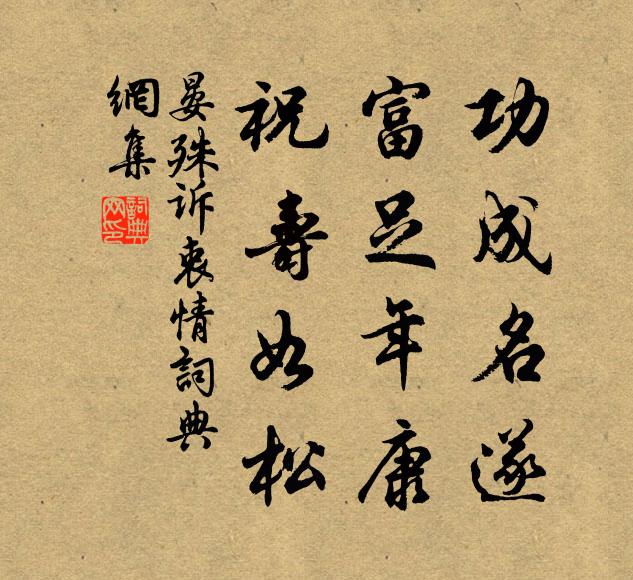 功成名遂
富足年康
祝壽如松
晏殊诉衷情詞典
網集
詞典网印